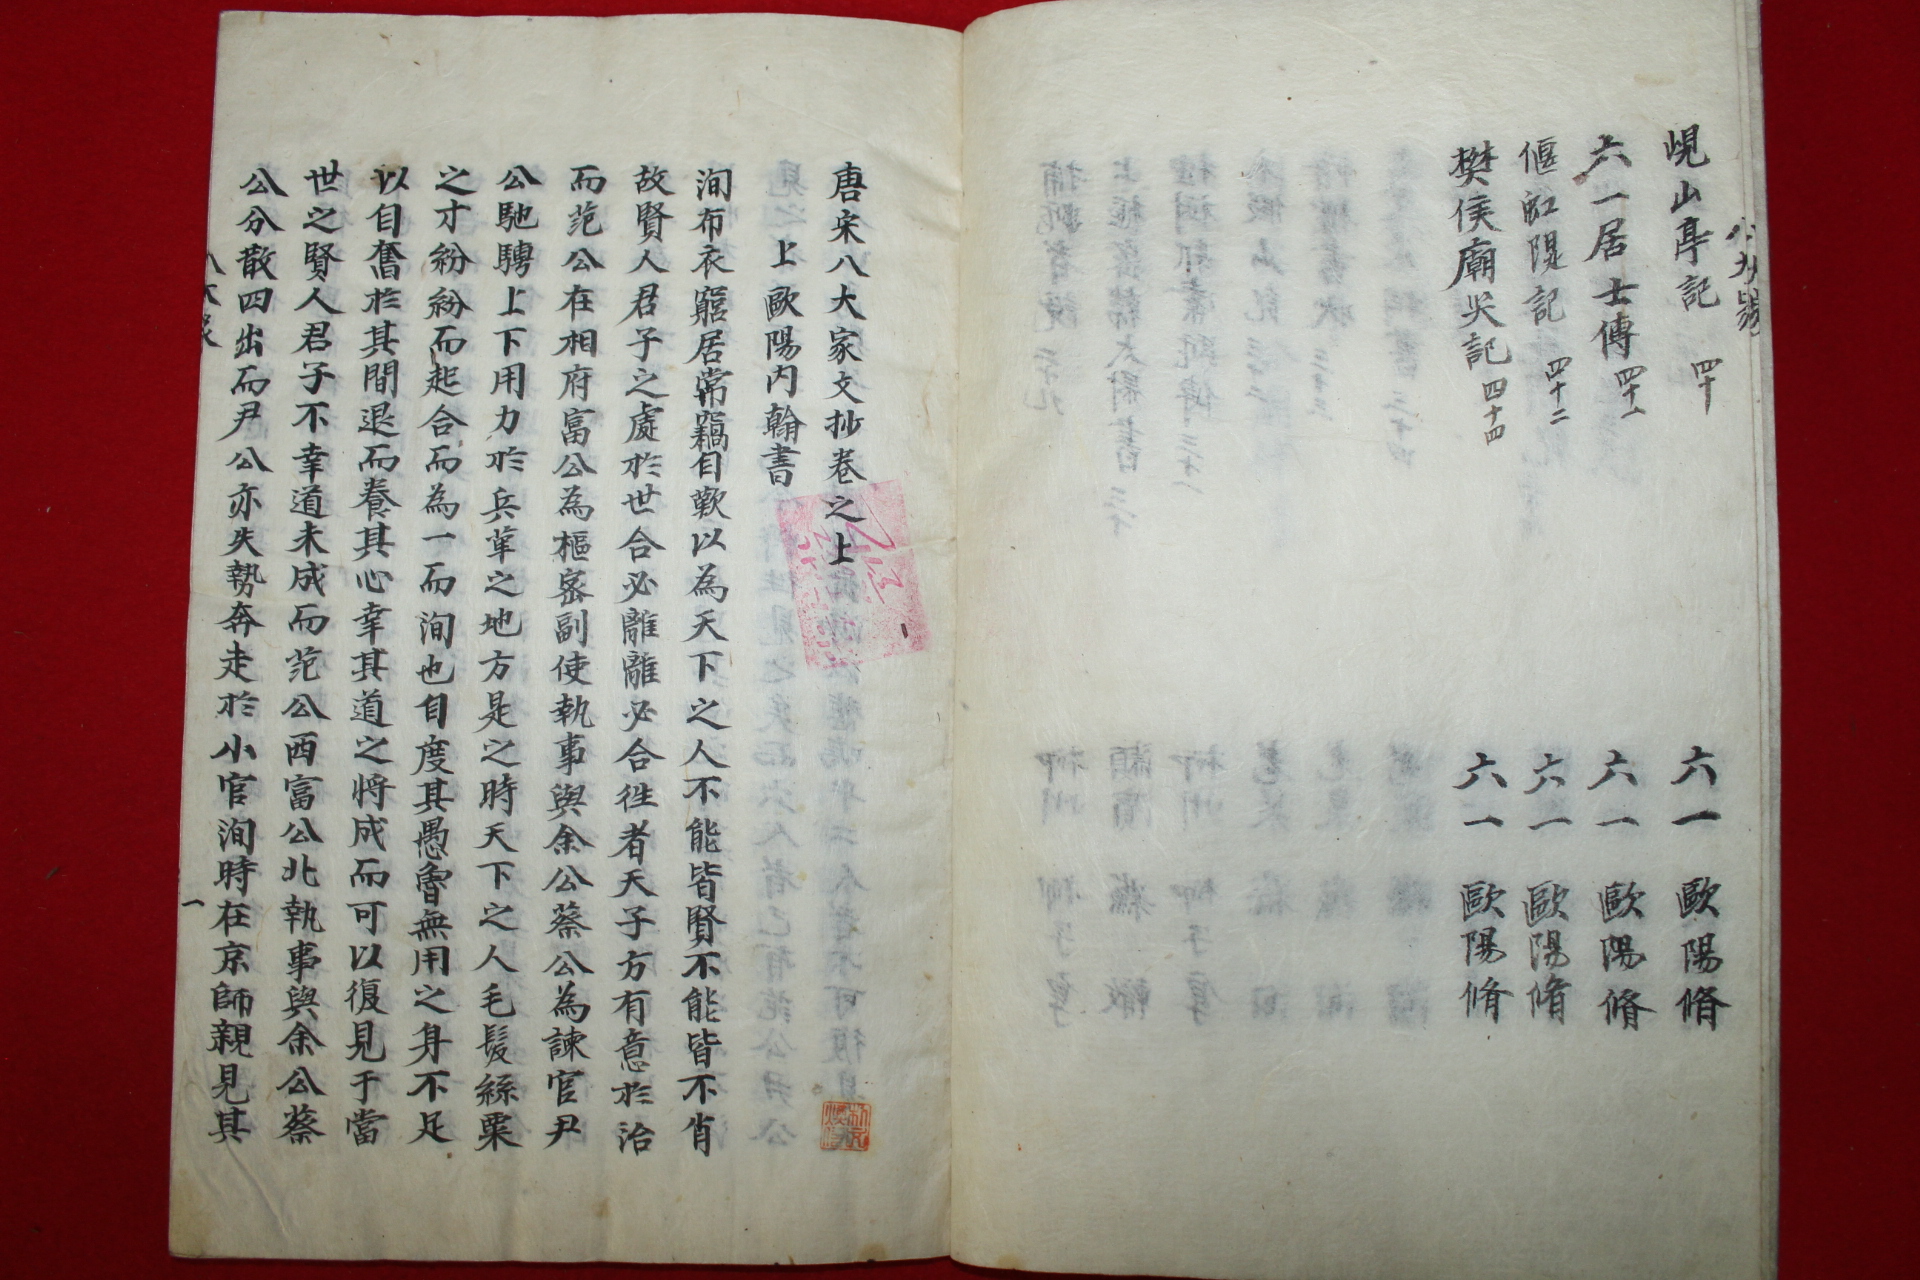 峴山亭記 四十 六一 歐陽脩
六一居士傳 四十一 六一 歐陽脩
偃虹隄記 四十二 六一 歐陽脩
樊侯廟災記 四十四 六一 歐陽脩
唐宋八大家文抄卷之上
上歐陽內翰書
洵布衣窮居常竊自歎以為天下之人不能皆賢不能皆不肖
故賢人君子之處於世合必離離必合徃者天子方有意於治
而范公在相府富公為樞密副使執事與余公蔡公為諫官尹
公馳騁上下用力於兵革之地方是之時天下之人毛髮絲粟
之才紛紛而起合而為一而洵也自度其愚魯無用之身不足
以自奮於其間退而養其心幸其道之將成而可以復見于當
世之賢人君子不幸道未成而范公西富公北執事與余公蔡
公分散四出而尹公亦失勢奔走於小官洵時在京師親見其
一